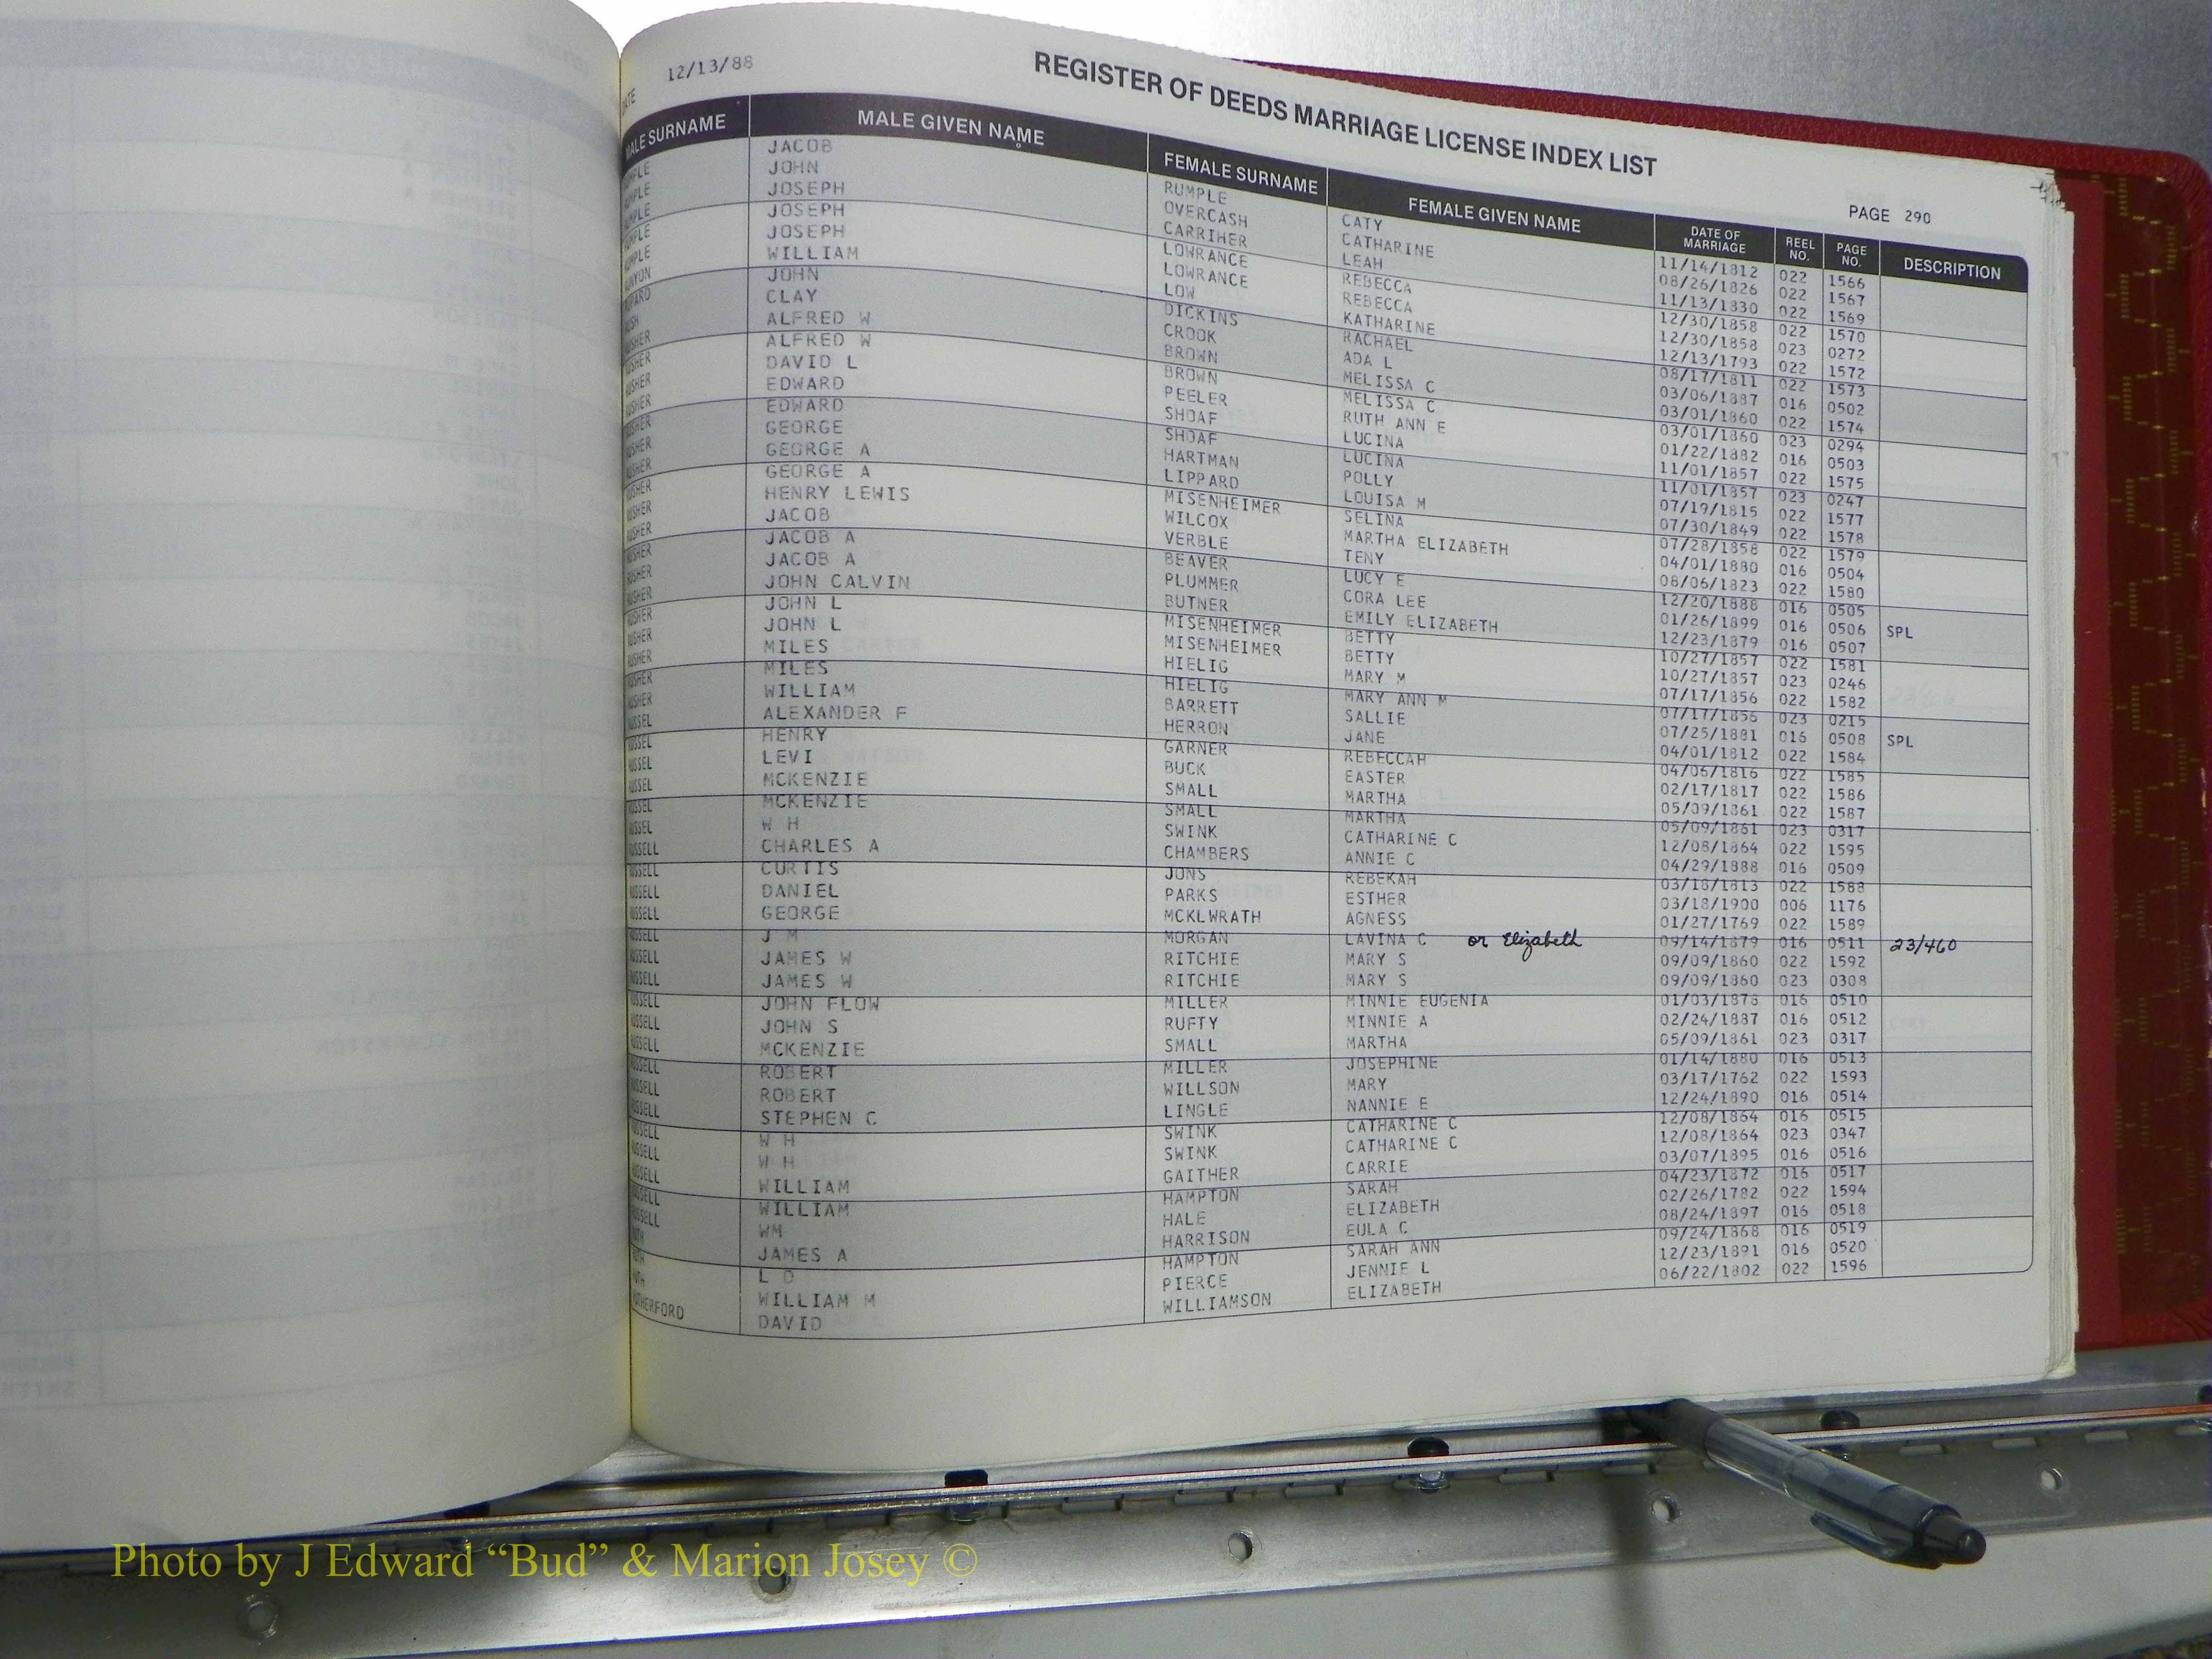 12/13/88
REGISTER OF DEEDS MARRIAGE LICENSE INDEX LIST
PAGE 290
MALE SURNAME MALE GIVEN NAME FEMALE SURNAME FEMALE GIVEN NAME DATE OF MARRIAGE REEL NO. PAGE NO. DESCRIPTION
RUMPLE JACOB RUMPLE CATY 11/14/1812 022 1566
RUMPLE JOHN OVERCASH CATHARINE 08/26/1826 022 1567
RUMPLE JOSEPH CARRIHER LEAH 11/13/1830 022 1569
RUMPLE JOSEPH LOWRANCE REBECCA 12/30/1858 022 1570
RUMPLE JOSEPH LOWRANCE REBECCA 12/30/1858 023 0272
RUNYON WILLIAM LOW KATHARINE 12/13/1793 022 1572
JOHN DICKINS RACHAEL 08/17/1811 022 1573
RUSH CLAY CROOK ADA L 03/06/1887 016 0502
RUSHER ALFRED W BROWN MELISSA C 03/01/1860 022 1574
RUSHER ALFRED W BROWN MELISSA C 03/01/1860 023 0294
RUSHER DAVID L PEELER RUTH ANN E 01/22/1882 016 0503
RUSHER EDWARD SHOAF LUCINA 11/01/1857 022 1575
RUSHER EDWARD SHOAF LUCINA 11/01/1857 023 0247
RUSHER GEORGE HARTMAN POLLY 07/19/1815 022 1577
RUSHER GEORGE A LIPPARD LOUISA M 07/30/1849 022 1578
RUSHER GEORGE A MISENHEIMER SELINA 07/28/1858 022 1579
RUSHER HENRY LEWIS WILCOX MARTHA ELIZABETH 04/01/1880 016 0504
RUSHER JACOB VERBLE TENY 08/06/1823 022 1580
RUSHER JACOB A BEAVER LUCY E 12/20/1888 016 0505
RUSHER JACOB A PLUMMER CORA LEE 01/26/1899 016 0506 SPL
RUSHER JOHN CALVIN BUTNER EMILY ELIZABETH 12/23/1879 016 0507
RUSHER JOHN L MISENHEIMER BETTY 10/27/1857 022 1581
RUSHER JOHN L MISENHEIMER BETTY 10/27/1857 023 0246
RUSHER MILES HIELIG MARY M 07/17/1856 022 1582
RUSHER MILES HIELIG MARY ANN M 07/17/1856 023 0215
RUSHER WILLIAM BARRETT SALLIE 07/25/1881 016 0508 SPL
RUSSEL ALEXANDER F HERRON JANE 04/01/1812 022 1584
RUSSEL HENRY GARNER REBECCAH 04/06/1816 022 1585
RUSSEL LEVI BUCK EASTER 02/17/1817 022 1586
RUSSEL MCKENZIE SMALL MARTHA 05/09/1861 022 1587
RUSSEL MCKENZIE SMALL MARTHA 05/09/1861 023 0317
RUSSEL W H SWINK CATHARINE C 12/08/1864 022 1595
RUSSELL CHARLES A CHAMBERS ANNIE C 04/29/1888 016 0509
RUSSELL CURTIS JONS REBEKAH 03/18/1813 022 1588
RUSSELL DANIEL PARKS ESTHER 03/18/1900 006 1176
RUSSELL GEORGE MCKLWRATH AGNESS 01/27/1769 022 1589
RUSSELL J M MORGAN LAVINA C or Elizabeth 09/14/1879 016 0511 23/460
RUSSELL JAMES W RITCHIE MARY S 09/09/1860 022 1592
RUSSELL JAMES W RITCHIE MARY S 09/09/1860 023 0308
RUSSELL JOHN FLOW MILLER MINNIE EUGENIA 01/03/1878 016 0510
RUSSELL JOHN S RUFTY MINNIE A 02/24/1887 016 0512
RUSSELL MCKENZIE SMALL MARTHA 05/09/1861 023 0317
RUSSELL ROBERT MILLER JOSEPHINE 01/14/1880 016 0513
RUSSELL ROBERT WILLSON MARY 03/17/1762 022 1593
RUSSELL STEPHEN C LINGLE NANNIE E 12/24/1890 016 0514
RUSSELL W H SWINK CATHARINE C 12/08/1864 016 0515
RUSSELL W H SWINK CATHARINE C 12/08/1864 023 0347
RUSSELL WILLIAM GAITHER CARRIE 03/07/1895 016 0516
RUSSELL WILLIAM HAMPTON SARAH 04/23/1872 016 0517
RUSSELL WM HALE ELIZABETH 02/26/1782 022 1594
RUTH JAMES A HARRISON EULA C 08/24/1897 016 0518
RUTH L D HAMPTON SARAH ANN 09/24/1868 016 0519
RUTH WILLIAM M PIERCE JENNIE L 12/23/1891 016 0520
RUTHERFORD DAVID WILLIAMSON ELIZABETH 06/22/1802 022 1596
Photo by J Edward “Bud” & Marion Josey ©